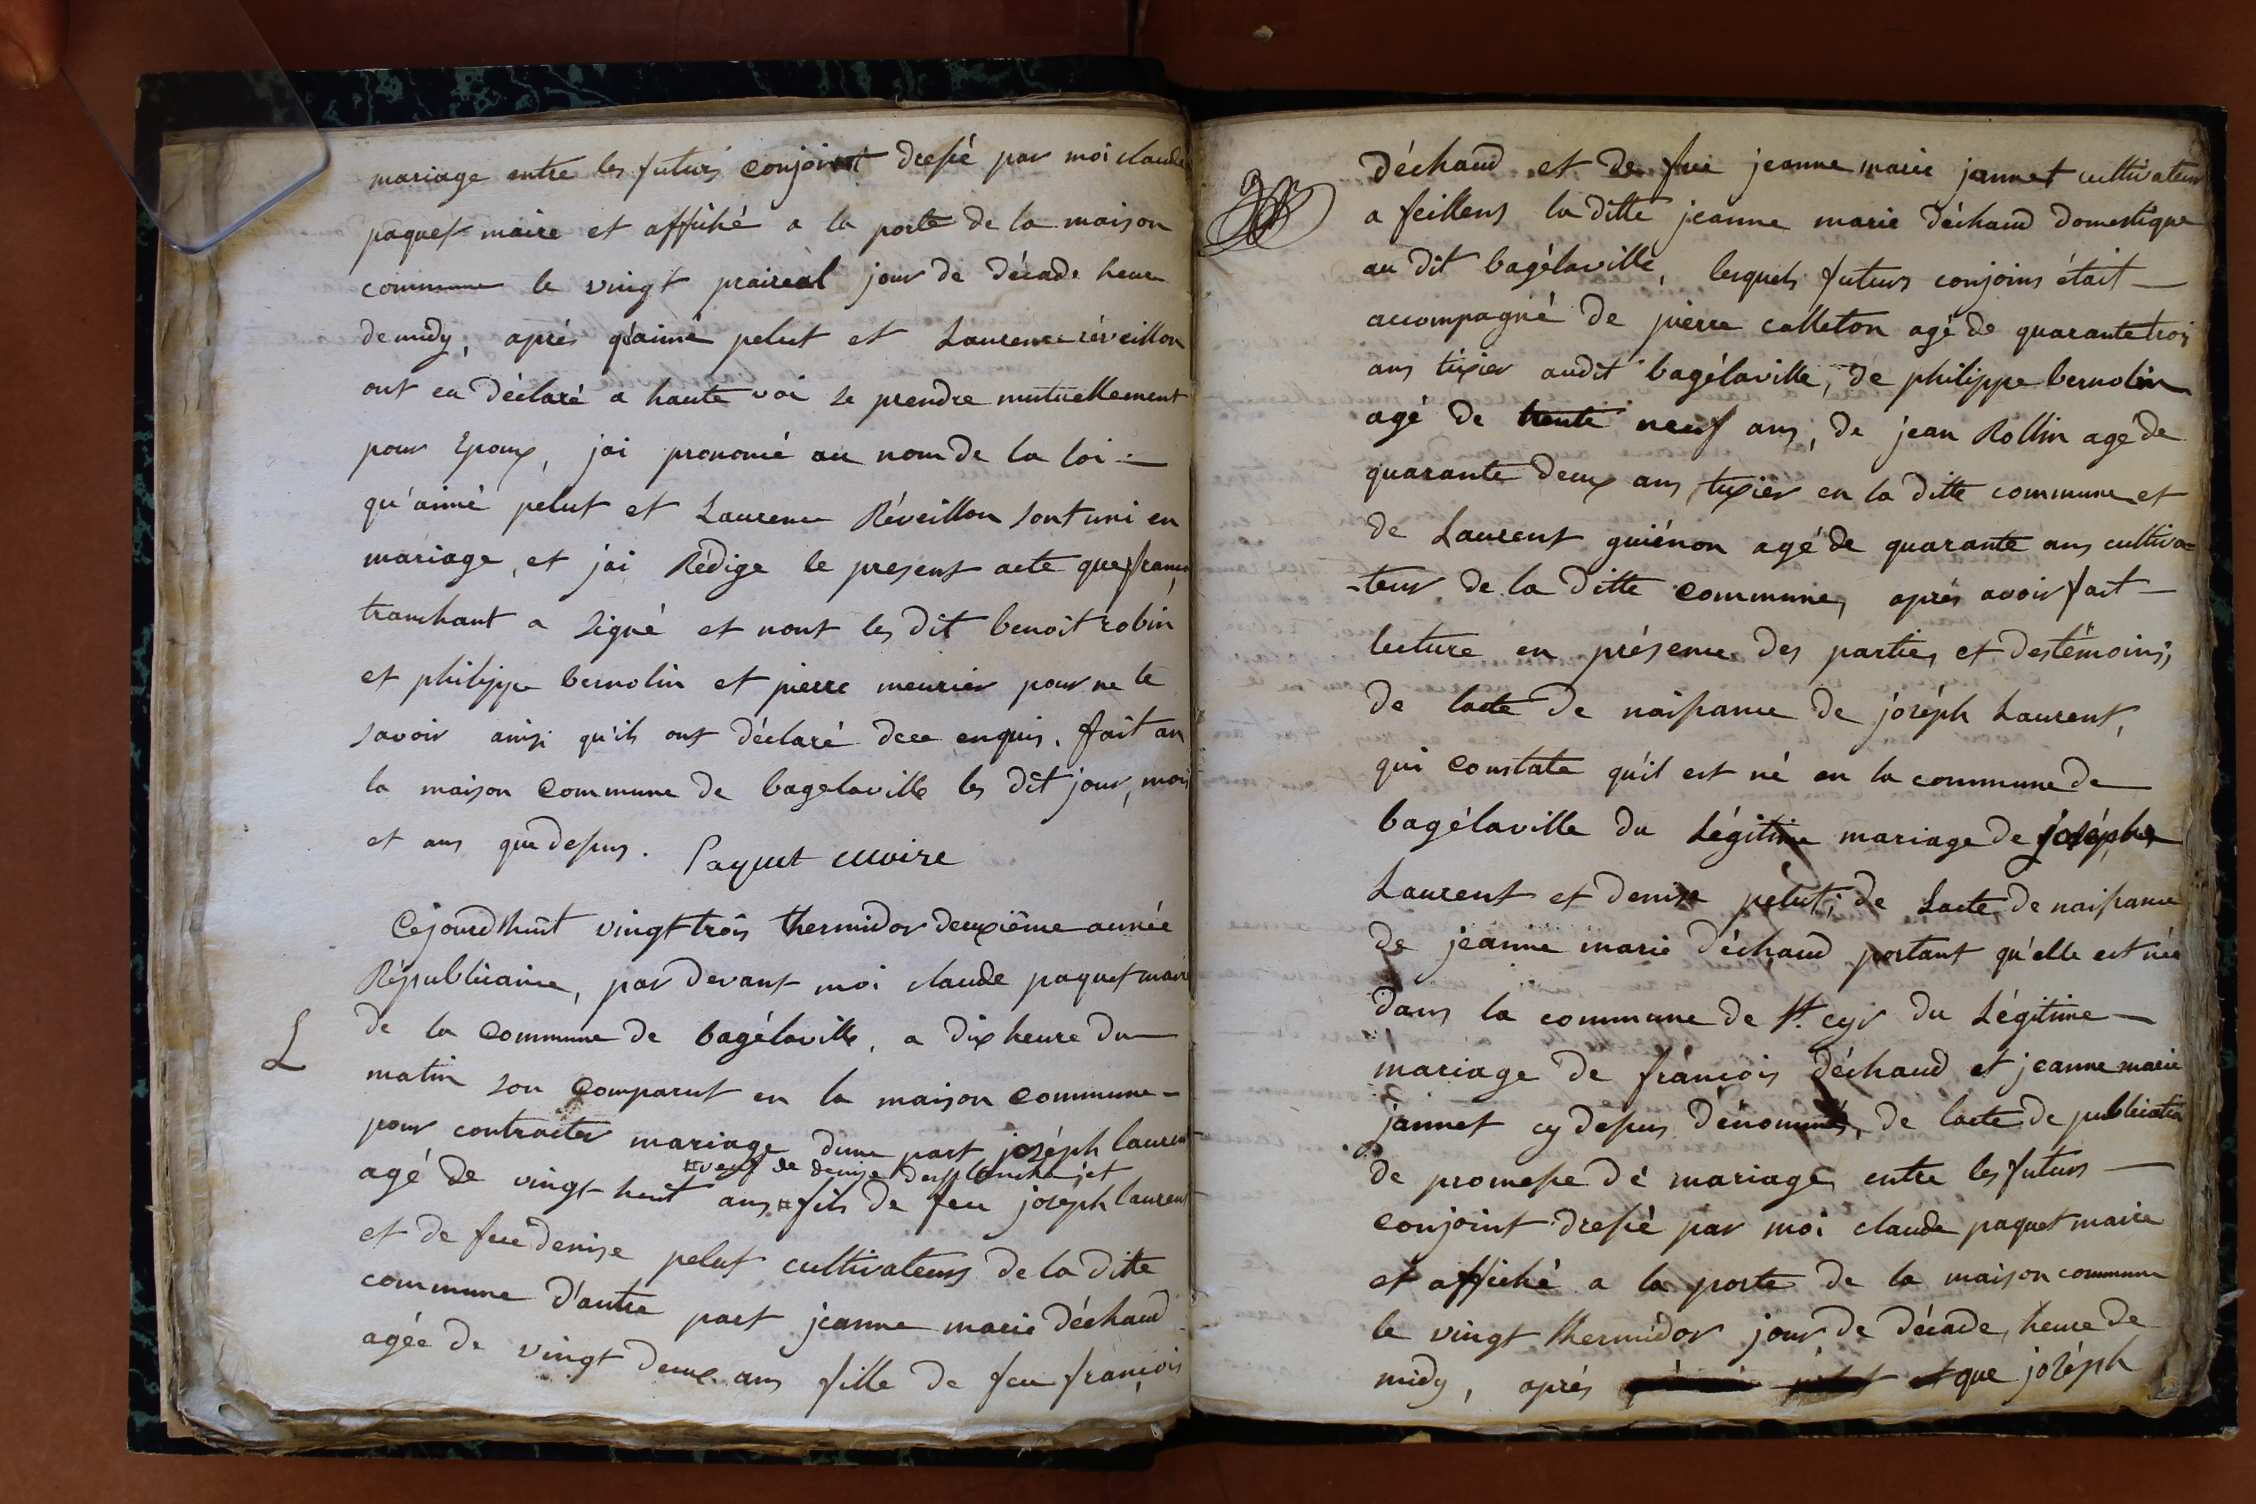 mariage entre les futurs conjoint dressé par moi claude
paquet maire et affiché a la porte de la maison
commune le vingt praireal jour de décade heure
de midy, aprés qu'aimé pelut et Laurence réveillon
ont eu déclaré a haute voi se prendre mutuellement
pour Epoux, jai prononcé au nom de la loi -
qu'aimé pelut et Laurence Réveillon sont uni en
mariage, et jai Rédige le present acte que francois
tranchant a signé et nont les dit benoît robin
et philippe bernolin et pierre meurier pour ne le
savoir ainsi qu'ils ont déclaré de ce enquis. fait an
la maison commune de bagelaville les dit jour, mois
et ans que dessus. Paquet maire
Cejourdhuit vingt trois thermidor deuxiême année
Républicaine, par devant moi claude paquet maire
L
de la commune de bagélaville, a dix heure du
matin son comparut en la maison commune -
pour contracter mariage dune part joséph laurent
¤ veuf de denise desplanche jet
agé de vingt huit ans ¤ fils de feu joseph laurent
et de feue denise pelut cultivateurs de la ditte
commune d'autre part jeanne marie déchaud
agée de vingt deux ans fille de feu françois
déchaud et de fue jeanne marie jannet cultivateur
a feillens la ditte jeanne marie déchaud domestique
au dit bagélaville, lesquels futurs conjoins était -
accompagné de pierre calleton agé de quarante trois
ans tixier audit bagélaville, de philippe bernolin
agé de trente neuf ans, de jean Rollin age de
quarante deux ans tixier en la ditte commune et
de Laurent guiénon agé de quarante ans cultiva=
-teur de la ditte commune, aprés avoir fait -
lecture en présence des parties et des témoins,
de lacte de naissance de joséph Laurent,
qui constate qu'il est né en la commune de
bagélaville du Légitime mariage de joséphe
Laurent et denise pelut; de Lacte de naissance
de jeanne marie déchaud portant qu'elle est née
dans la commune de St. cyr du Légitime -
mariage de françois déchaud et jeanne marie
jannet cy dessus dénommés, de lacte de publication
de promesse dé mariage entre les futurs -
conjoint dressé par moi claude paquet maire
et affiché a la porte de la maison commune
le vingt thermidor jour de décade, heure de
midy, aprés que joséph